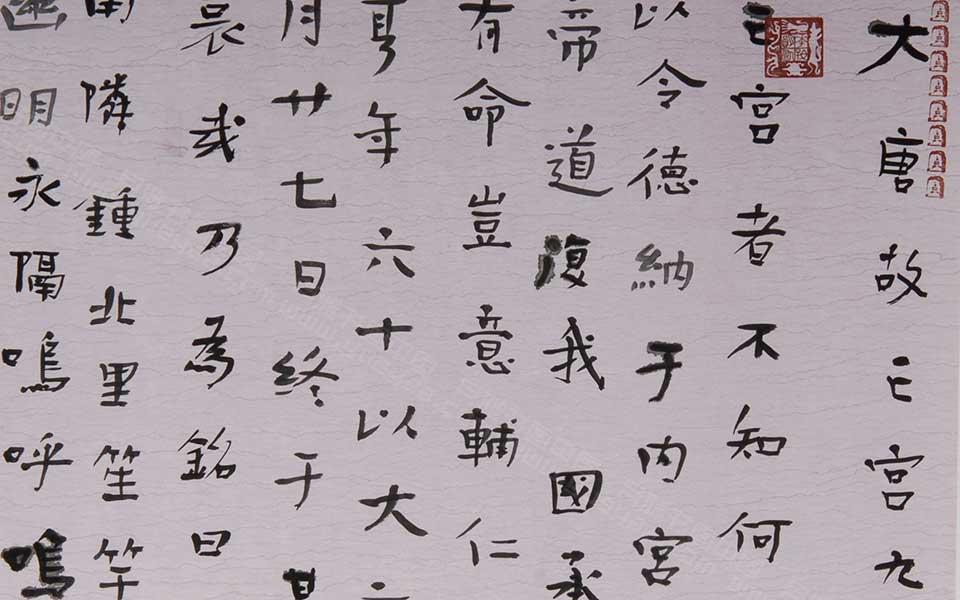 大唐故亡宫九
亡宫者不知何
以令德納于内宫
帝道復我國承
有命豈意輔仁
享年六十以大
月廿七日終于
哀哉乃為銘曰
南隣鍾北里笙竽
幽明永隔嗚呼嗚